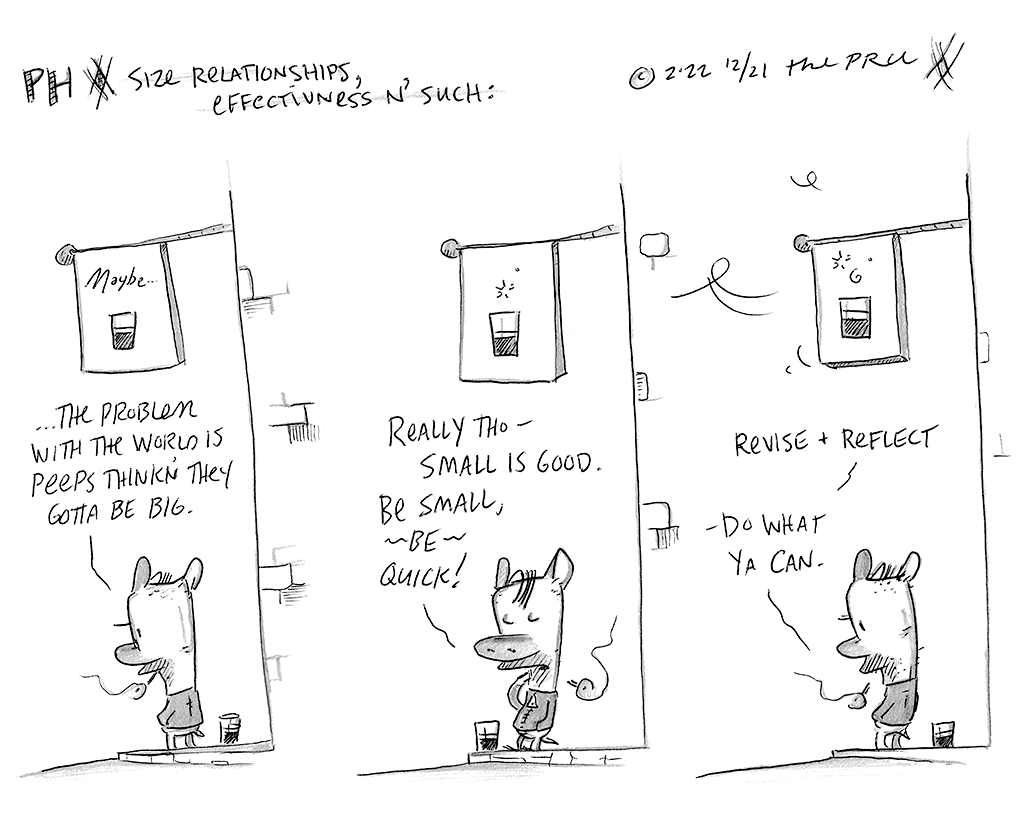 PH SIZE RELATIONSHIPS,
EFFECTIVNESS N' SUCH:
© 2·22 12/21 the PRU
Maybe...
...THE PROBLEM
WITH THE WORLD IS
PEEPS THINKN' THEY
GOTTA BE BIG.
REALLY THO –
SMALL IS GOOD.
BE SMALL,
~BE~
QUICK!
REVISE + REFLECT
-DO WHAT
YA CAN.